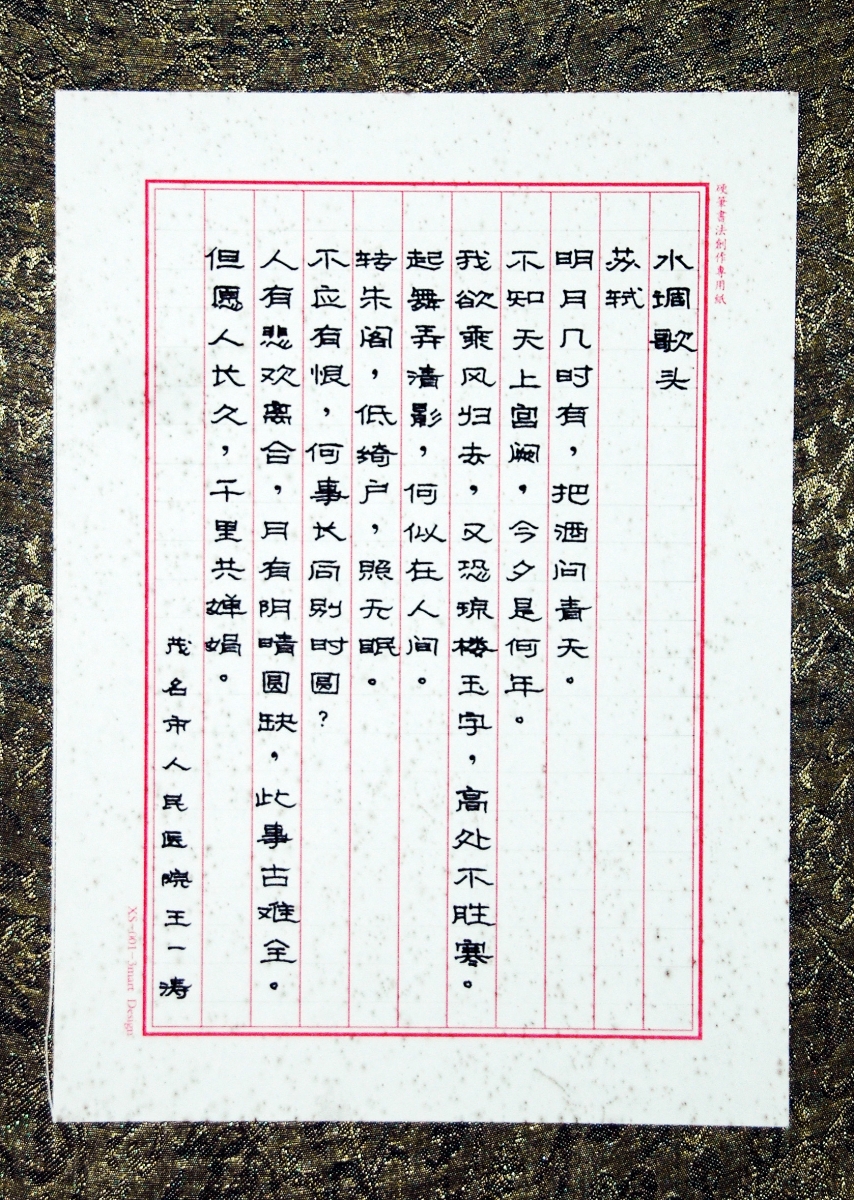 硬筆書法創作專用紙
水调歌头
苏轼
明月几时有，把酒问青天。
不知天上宫阙，今夕是何年。
我欲乘风归去，又恐琼楼玉宇，高处不胜寒。
起舞弄清影，何似在人间。
转朱阁，低绮户，照无眠。
不应有恨，何事长向别时圆？
人有悲欢离合，月有阴晴圆缺，此事古难全。
但愿人长久，千里共婵娟。
茂名市人民医院王一涛
Design